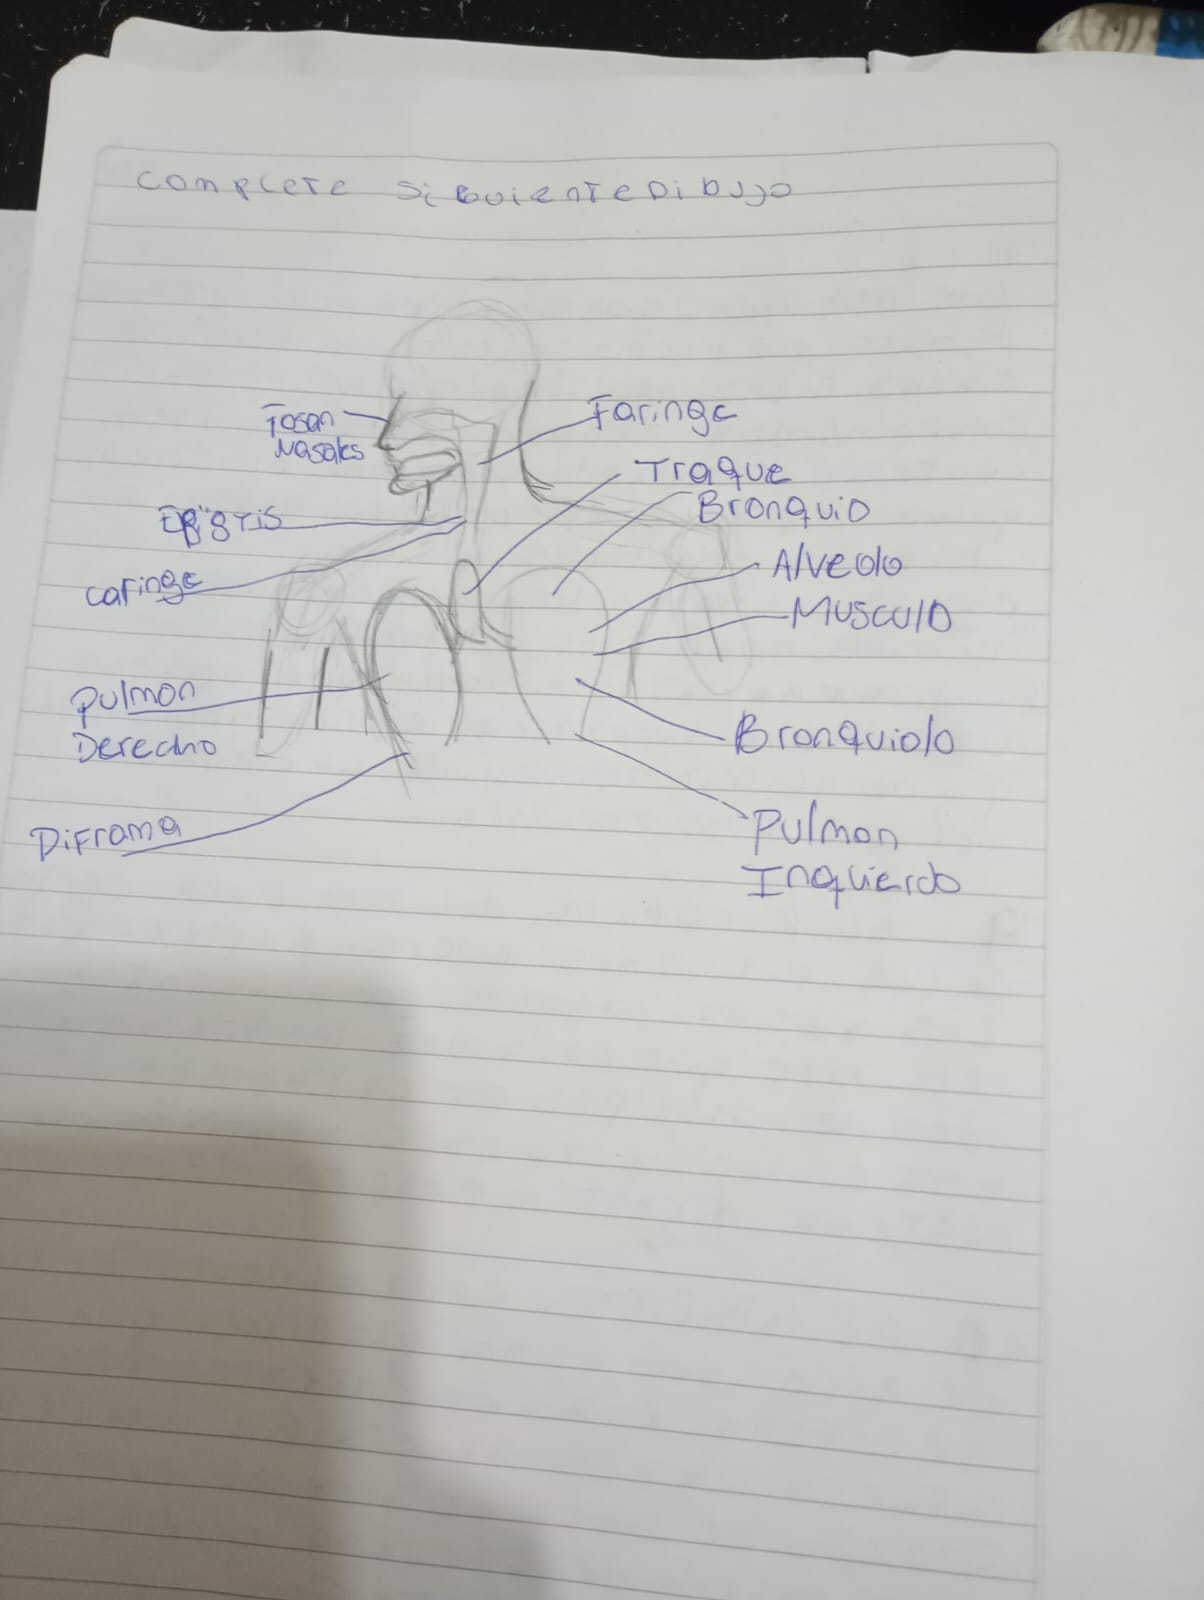 complete siguiente Dibujo
Fosan
Nasales
Faringe
Traque
Bronquio
Alveolo
Musculo
caringe
pulmon
Derecho
Bronquiolo
Diframa
Pulmon
Inquierdo